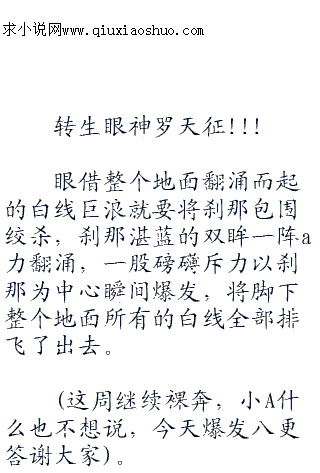 求小说网www.qiuxiaoshuo.com
转生眼神罗天征!!!
眼借整个地面翻涌而起
的白线巨浪就要将刹那包围
绞杀，刹那湛蓝的双眸一阵a
力翻涌，一股磅礴斥力以刹
那为中心瞬间爆发，将脚下
整个地面所有的白线全部排
飞了出去。
(这周继续裸奔，小A什
么也不想说，今天爆发八更
答谢大家)。